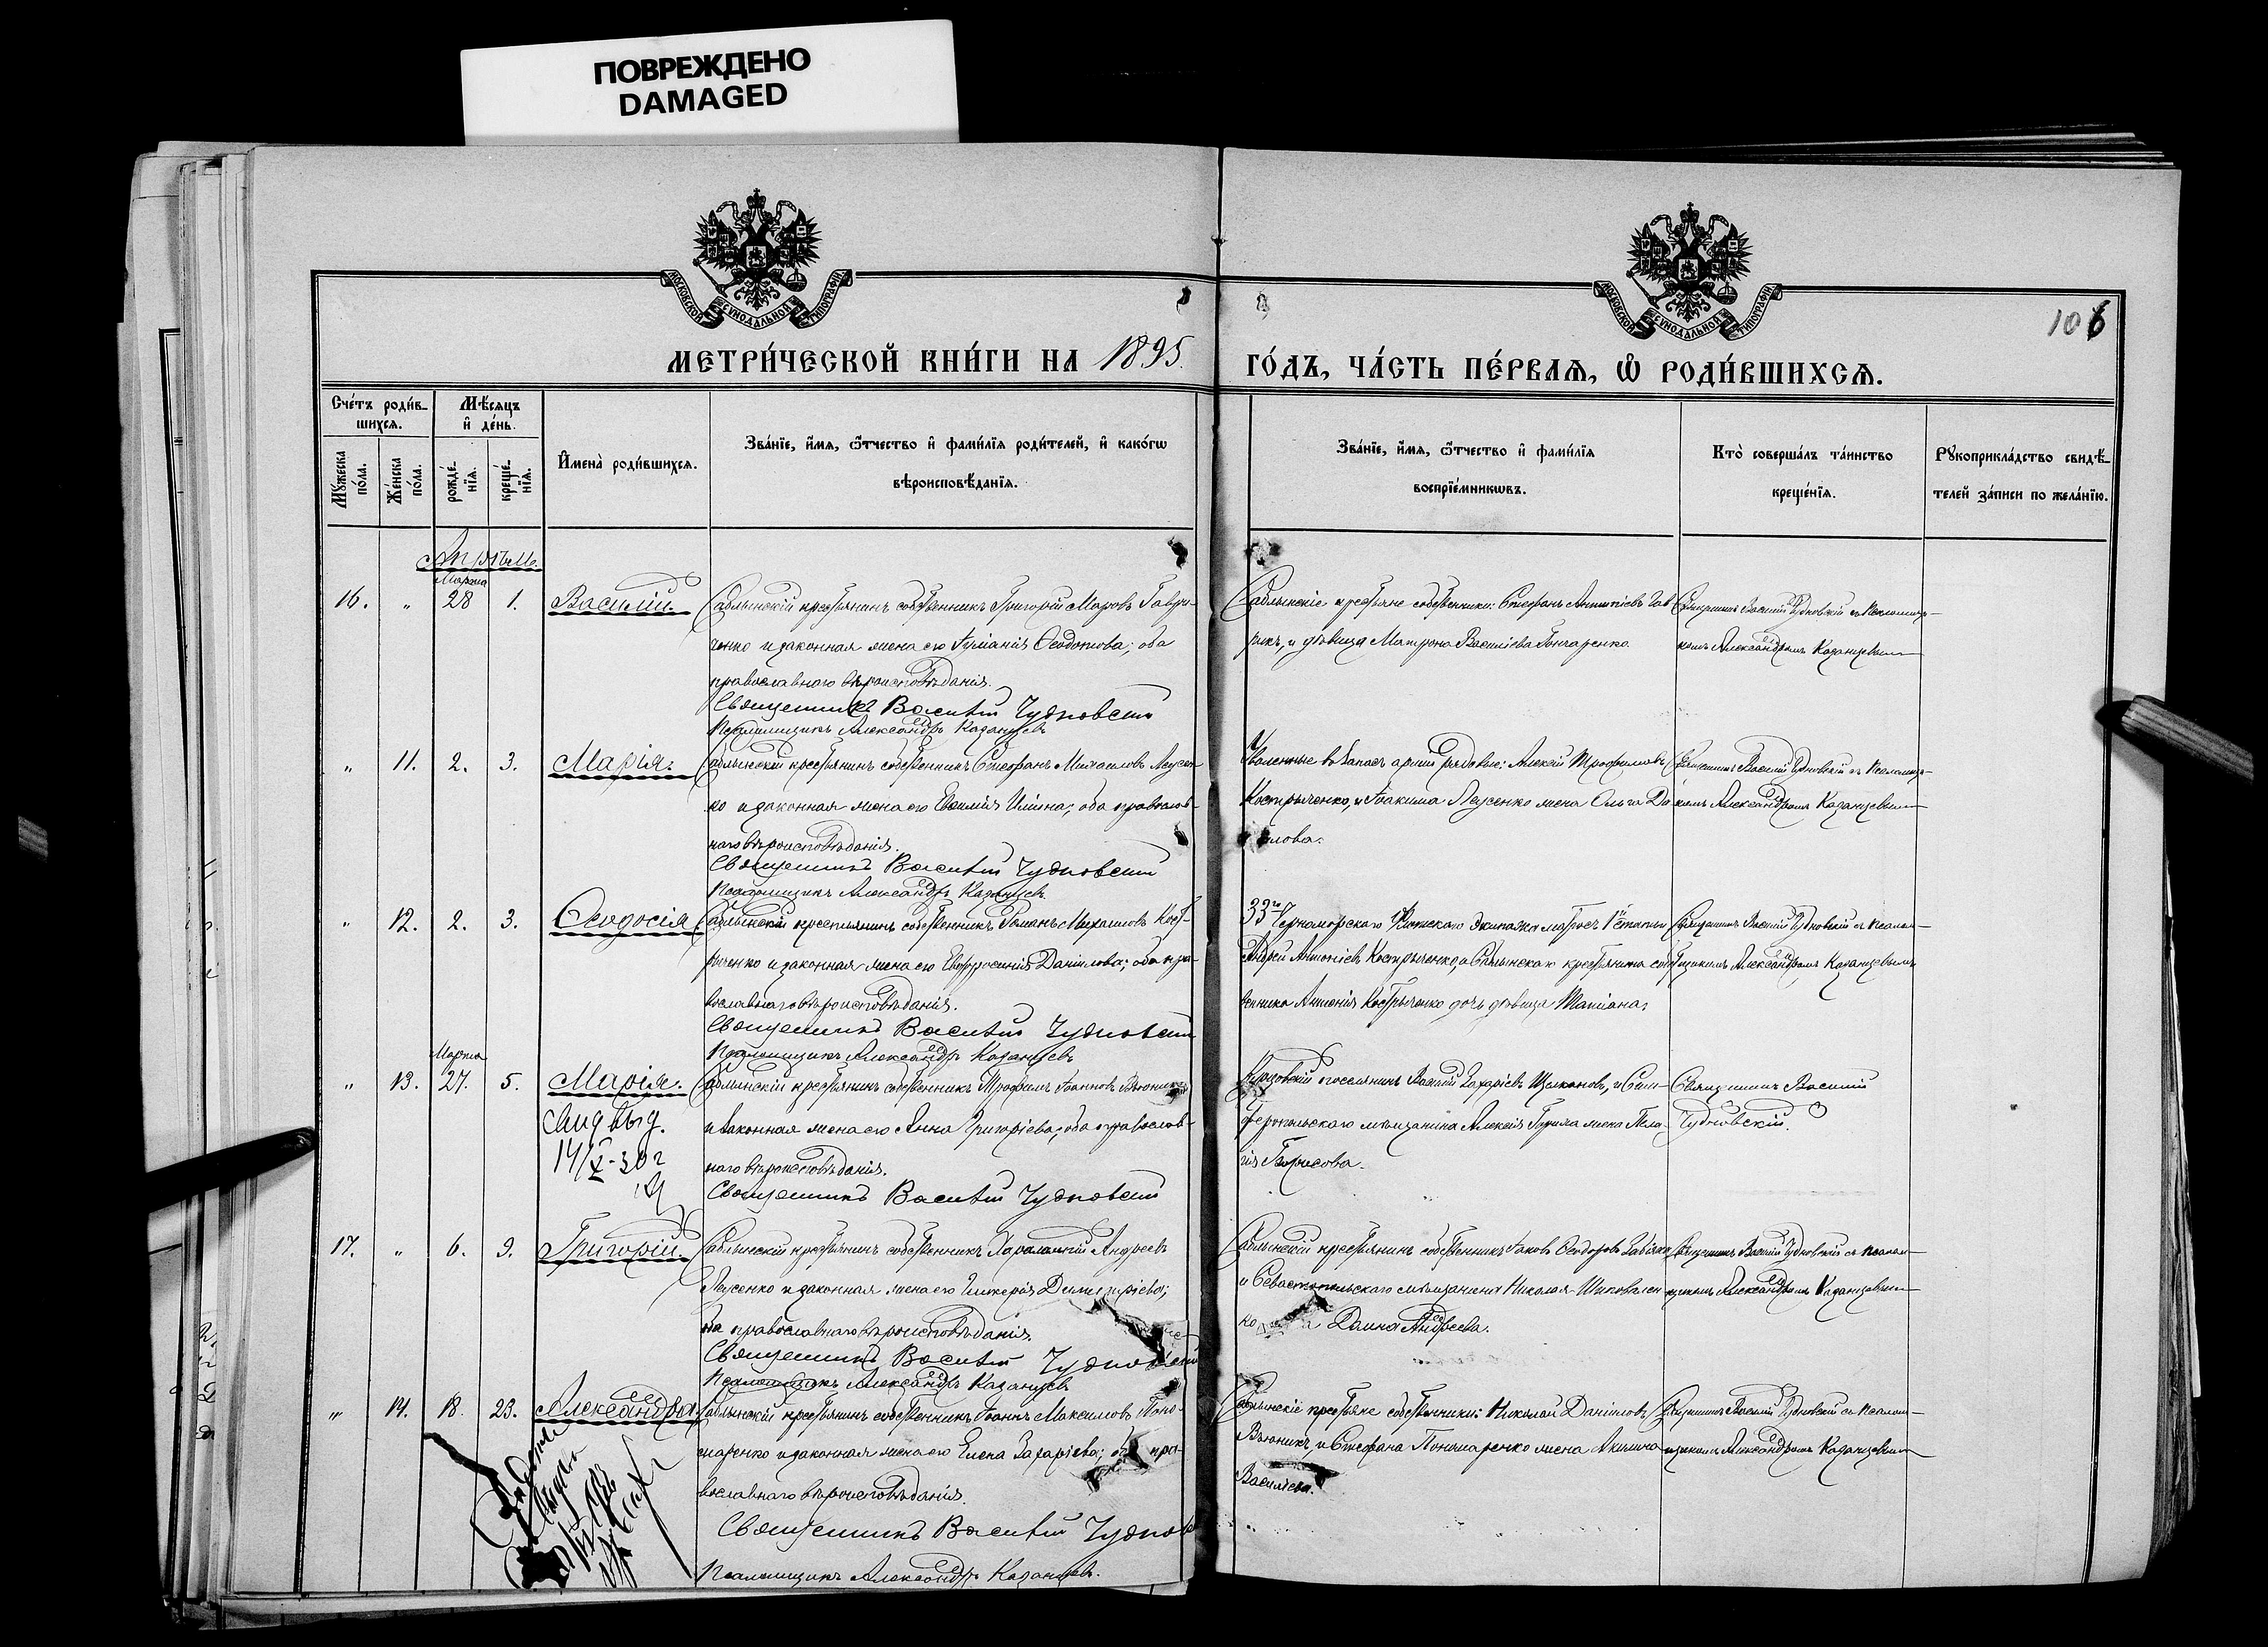 ПОВРЕЖДЕНО
DAMAGED
МОСКОВСКОЙ СУНОДАЛЬНОЙ ТИПОГРАФІИ
МОСКОВСКОЙ СУНОДАЛЬНОЙ ТИПОГРАФІИ
106
МЕТРИ́ЧЕСКОЙ КНИ́ГИ НА 1895
ГО́ДЪ, ЧА́СТЬ ПЕ́РВАЯ, Ѽ РОДИ́ВШИХСЯ.
Сче́тъ роди́в-
шихся.
Мѣ́сяцъ
и҆ де́нь.
Мꙋ́жеска по́ла.
Же́нска по́ла.
рожде́-
нїя.
креще́-
нїя.
И҆мена̀ роди́вшихся.
Зва́нїе, и҆́мя, ѻ҆́тчество и҆ фами́лїя роди́телей, и҆ како́гѡ
вѣроисповѣ́данїя.
Зва́нїе, и҆́мя, ѻ҆́тчество и҆ фами́лїя
воспрїе́мникѡвъ.
Кто̀ соверша́лъ та́инство
креще́нїя.
Рꙋкоприкла́дство свидѣ́-
телей за́писи по жела́нїю.
Апрѣль.
Марта
16. " 28 1. Василій. Саблынскій крестьянинъ собственникъ Григорій Марковъ Гаври-
ченко и законная жена его Іуліанія Ѳеодотова; оба
православнаго вѣроисповѣданія.
Священникъ Василій Чудновскій
Псаломщикъ Александръ Казанцевъ
Саблынскіе крестьяне собственники: Стефанъ
и дѣвица Матрона Василіева Гончаренко.
Священникъ Василій Чудновскій съ псаломщи-
комъ Александромъ Казанцевымъ
" 11. 2. 3. Марія. Саблынскій крестьянинъ собственникъ Стефанъ Михаиловъ Леусен-
ко и законная жена его Евѳимія Ильина; оба православ-
наго вѣроисповѣданія.
Священникъ Василій Чудновскій
Псаломщикъ Александръ Казанцевъ
Уволенные въ запасъ арміи рядовые: Алексій Трофимовъ
Костыренко, и Іоакима Леусенко жена Ольга Да
илова.
Священникъ Василій Чудновскій съ псаломщи-
комъ Александромъ Казанцевымъ
" 12. 2. 3. Ѳеодосія. Саблынскій крестьянинъ собственникъ Романъ Михаиловъ Кост-
рыченко и законная жена его Евфросинія Даніилова; оба пра-
вославнаго вѣроисповѣданія.
Священникъ Василій Чудновскій
Псаломщикъ Александръ Казанцевъ
33го Черноморскаго Флотскаго Экипажа матросъ 1й статьи
Андрей Антоніевъ Костыренко, и Саблынскаго крестьянина собст-
венника Антонія Костыренко дочь дѣвица Татіана.
Священникъ Василій Чудновскій съ псалом-
щикомъ Александромъ Казанцевымъ
Марта
" 13. 27. 5. Марія. Саблынскій крестьянинъ собственникъ Трофимъ Іоанновъ Вьюникъ
и законная жена его Анна Григоріева; оба православ-
наго вѣроисповѣданія.
Священникъ Василій Чудновскій
выд.
14/X-30г
поселянинъ Захаріевъ и Сим-
феропольскаго мѣщанина Алексія жена Пела-
гія Борисова.
Священникъ Василій
Чудновскій.
17. " 6. 9. Григорій. Саблынскій крестьянинъ собственникъ Харалампій Андреевъ
Леусенко и законная жена его Гликерія Димитріева;
оба православнаго вѣроисповѣданія.
Священникъ Василій Чудновскій
Псаломщикъ Александръ Казанцевъ
Саблынскій крестьянинъ собственникъ Іаковъ Ѳеодоровъ
и Севастопольскаго мѣщанина Николая Шаповален
ко Даина Андреева.
Священникъ Василій Чудновскій съ псалом-
щикомъ Александромъ Казанцевымъ
" 14. 18. 23. Александра. Саблынскій крестьянинъ собственникъ Іоаннъ Максимовъ Поно-
маренко и законная жена его Елена Захаріева; оба пра-
вославнаго вѣроисповѣданія.
Священникъ Василій Чуднов
Псаломщикъ Александръ Казанцевъ.
Саблынскіе крестьяне собственники: Николай Даніиловъ
Вьюникъ, и Стефана Пономаренко жена Акилина
Василіева.
Священникъ Василій Чудновскій съ псалом-
щикомъ Александромъ Казанцевымъ